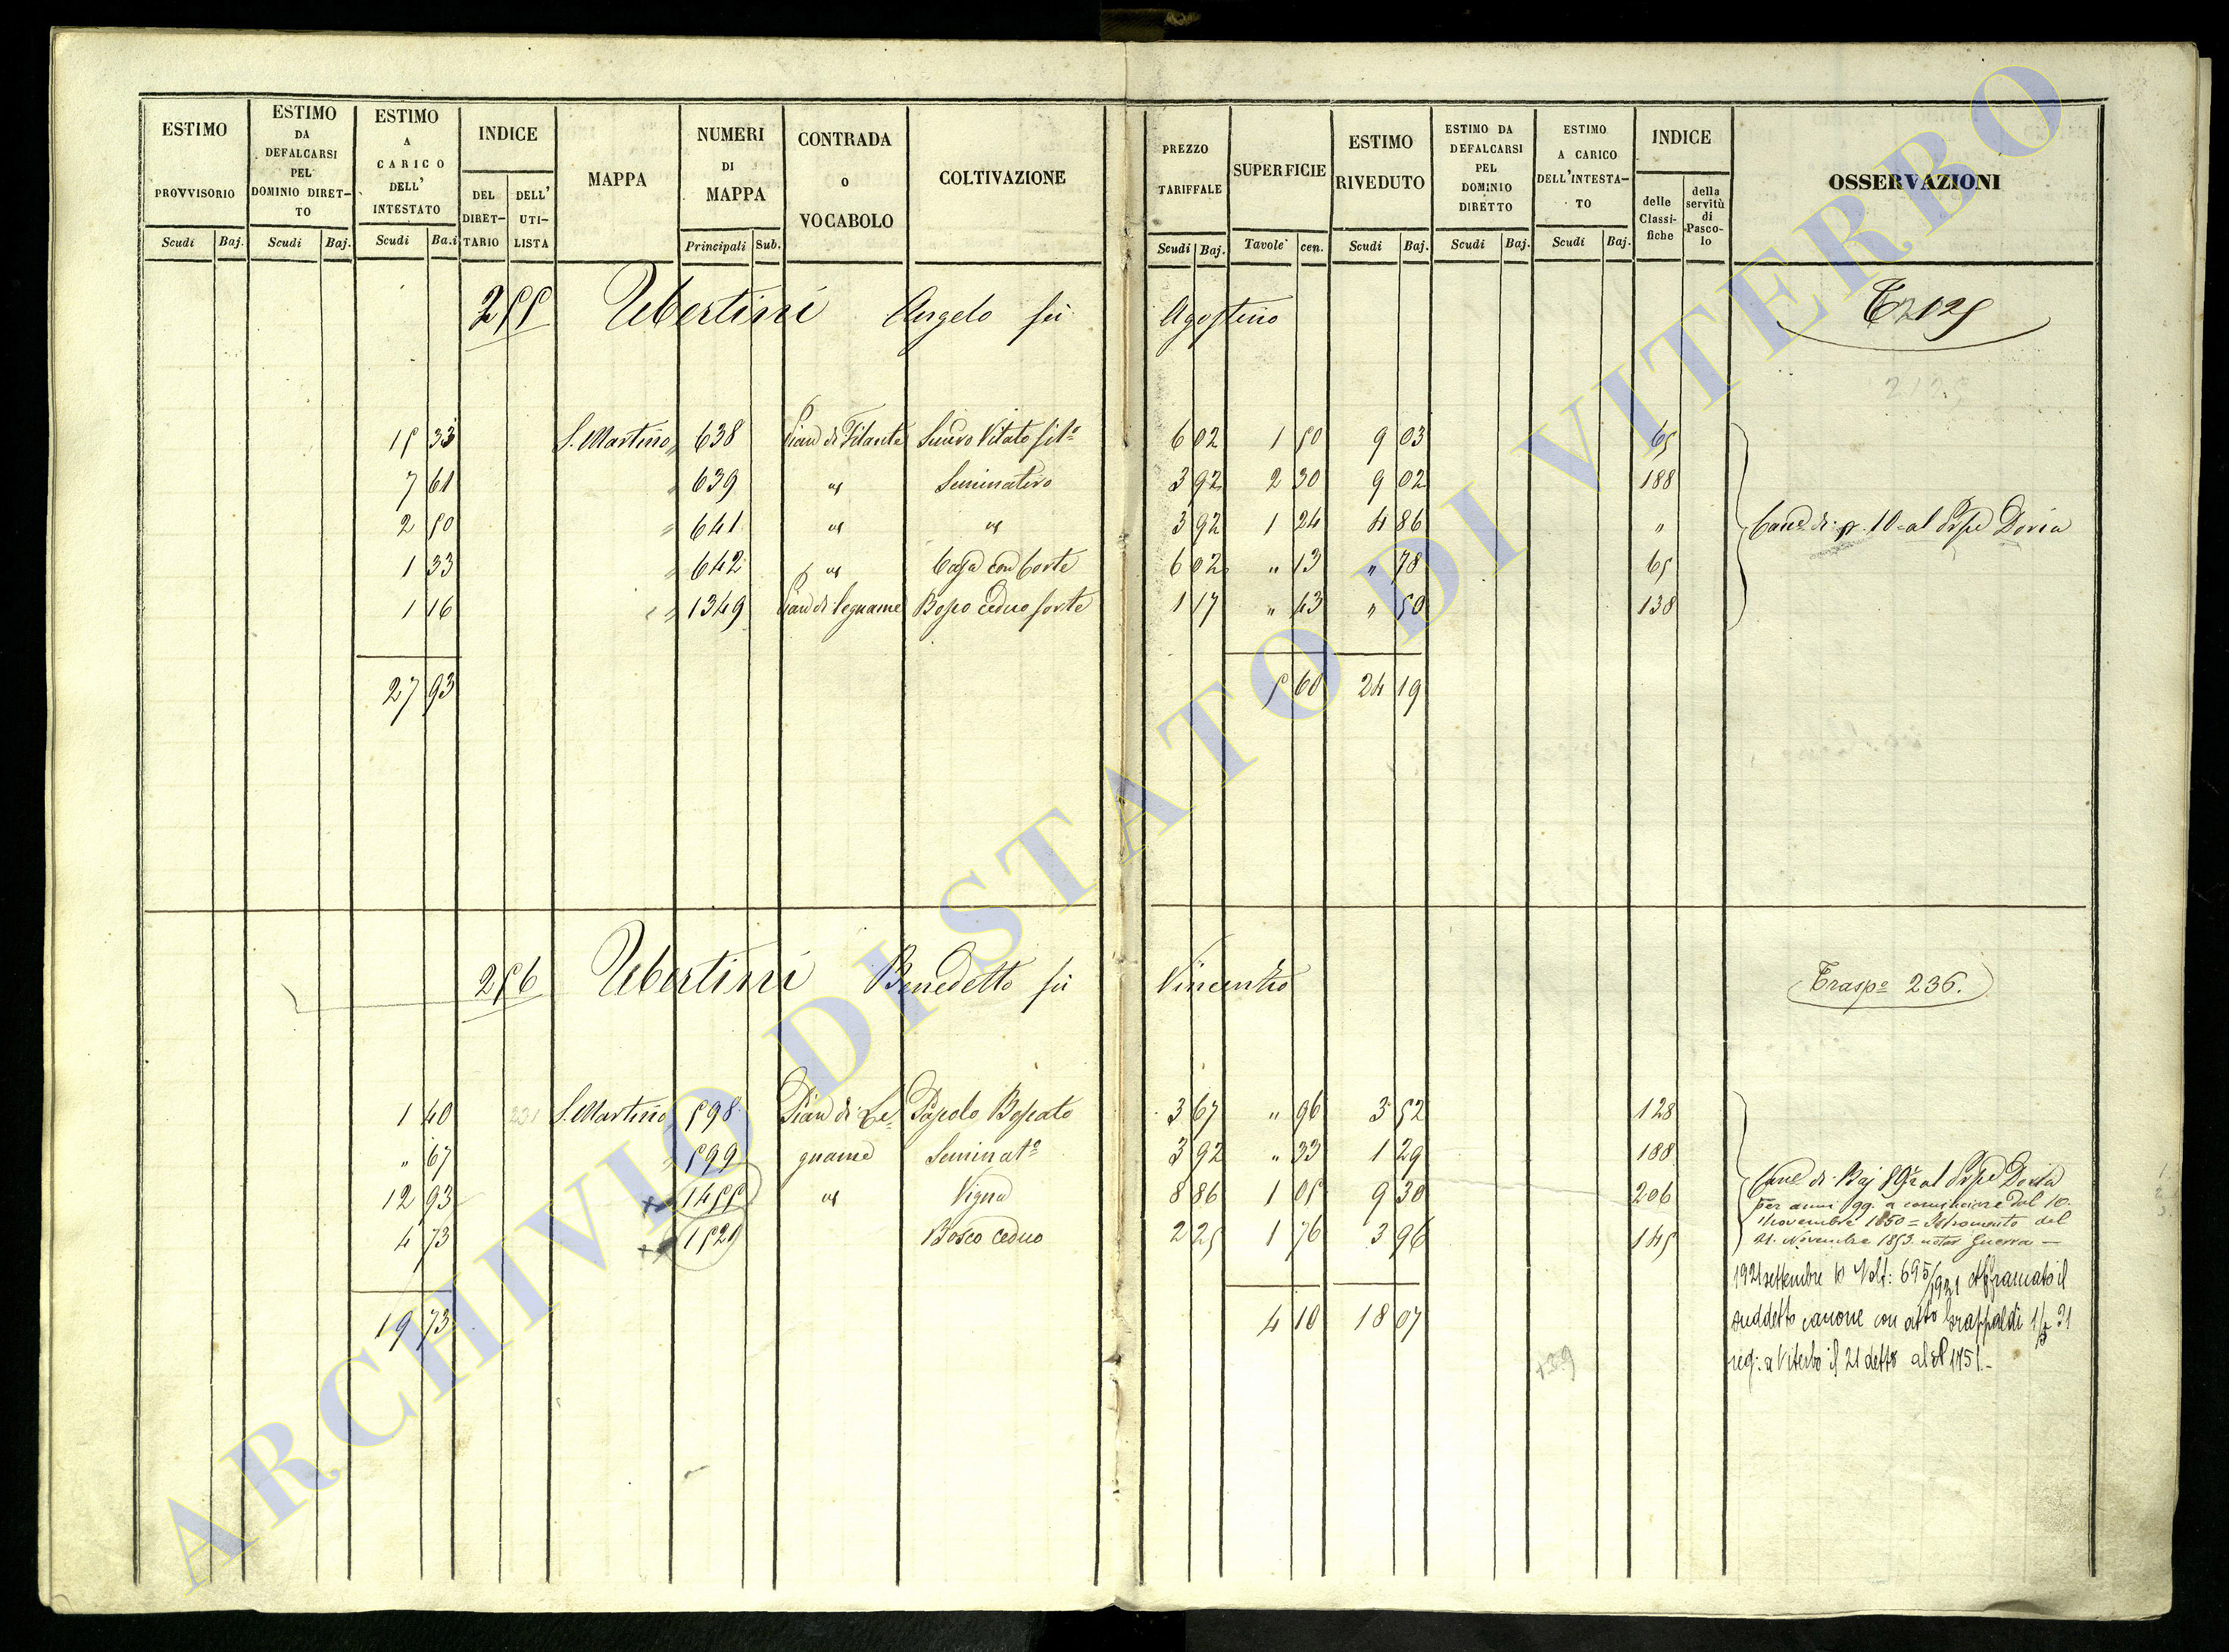 ESTIMO PROVVISORIO Scudi Baj.
ESTIMO DA DEFALCARSI PEL DOMINIO DIRET-TO Scudi Baj.
ESTIMO A CARICO DELL' INTESTATO Scudi Ba.i
INDICE DEL DIRET-TARIO DELL' UTI-LISTA
MAPPA
NUMERI DI MAPPA Principali Sub.
CONTRADA O VOCABOLO
COLTIVAZIONE
PREZZO TARIFFALE Scudi Baj.
SUPERFICIE Tavole cen.
ESTIMO RIVEDUTO Scudi Baj.
ESTIMO DA DEFALCARSI PEL DOMINIO DIRETTO Scudi Baj.
ESTIMO A CARICO DELL'INTESTA-TO Scudi Baj.
INDICE delle Classi-fiche della servitù di Pasco-lo
OSSERVAZIONI
255 Ubertini Angelo fù Agostino 125
2125
15 33 S. Martino 638 Pian di Filante Semvo Vitato 6 02 1 50 9 03 65
7 61 " 639 " Seminativo 3 92 2 30 9 02 188
2 50 " 641 " " 3 92 1 24 4 86 " di 10 al Doria
1 33 " 642 " Casa con Corte 6 02 " 13 " 78 65
1 16 " 1349 Pian di Legname Bosco ceduo forte 1 17 " 43 " 50 138
27 93 5 60 24 19
256 Ubertini Benedetto fù Vincenzo Traspo 236.
1 40 231 S. Martino 598 Pian di Le= Pascolo Boscato 3 67 " 96 3 52 128
" 67 " 599 gname Seminato 3 92 " 33 1 29 188
12 93 1455 " Vigna 8 86 1 05 9 30 206
4 73 1521 Bosco ceduo 2 25 1 76 3 96 145
19 73 4 10 18 07
di Baj al Doria
per anni 99. a cominciare dal 10.
Novembre 1850 = Istromento del
21. Novembre 1853. notar Guerra —
1921 settembre 10 Volt: 695/1921 Affrancato il
suddetto canone con atto Grappaldi 21
reg: a Viterbo il 21 detto al N 1751.-
139
ARCHIVIO DI STATO DI VITERBO